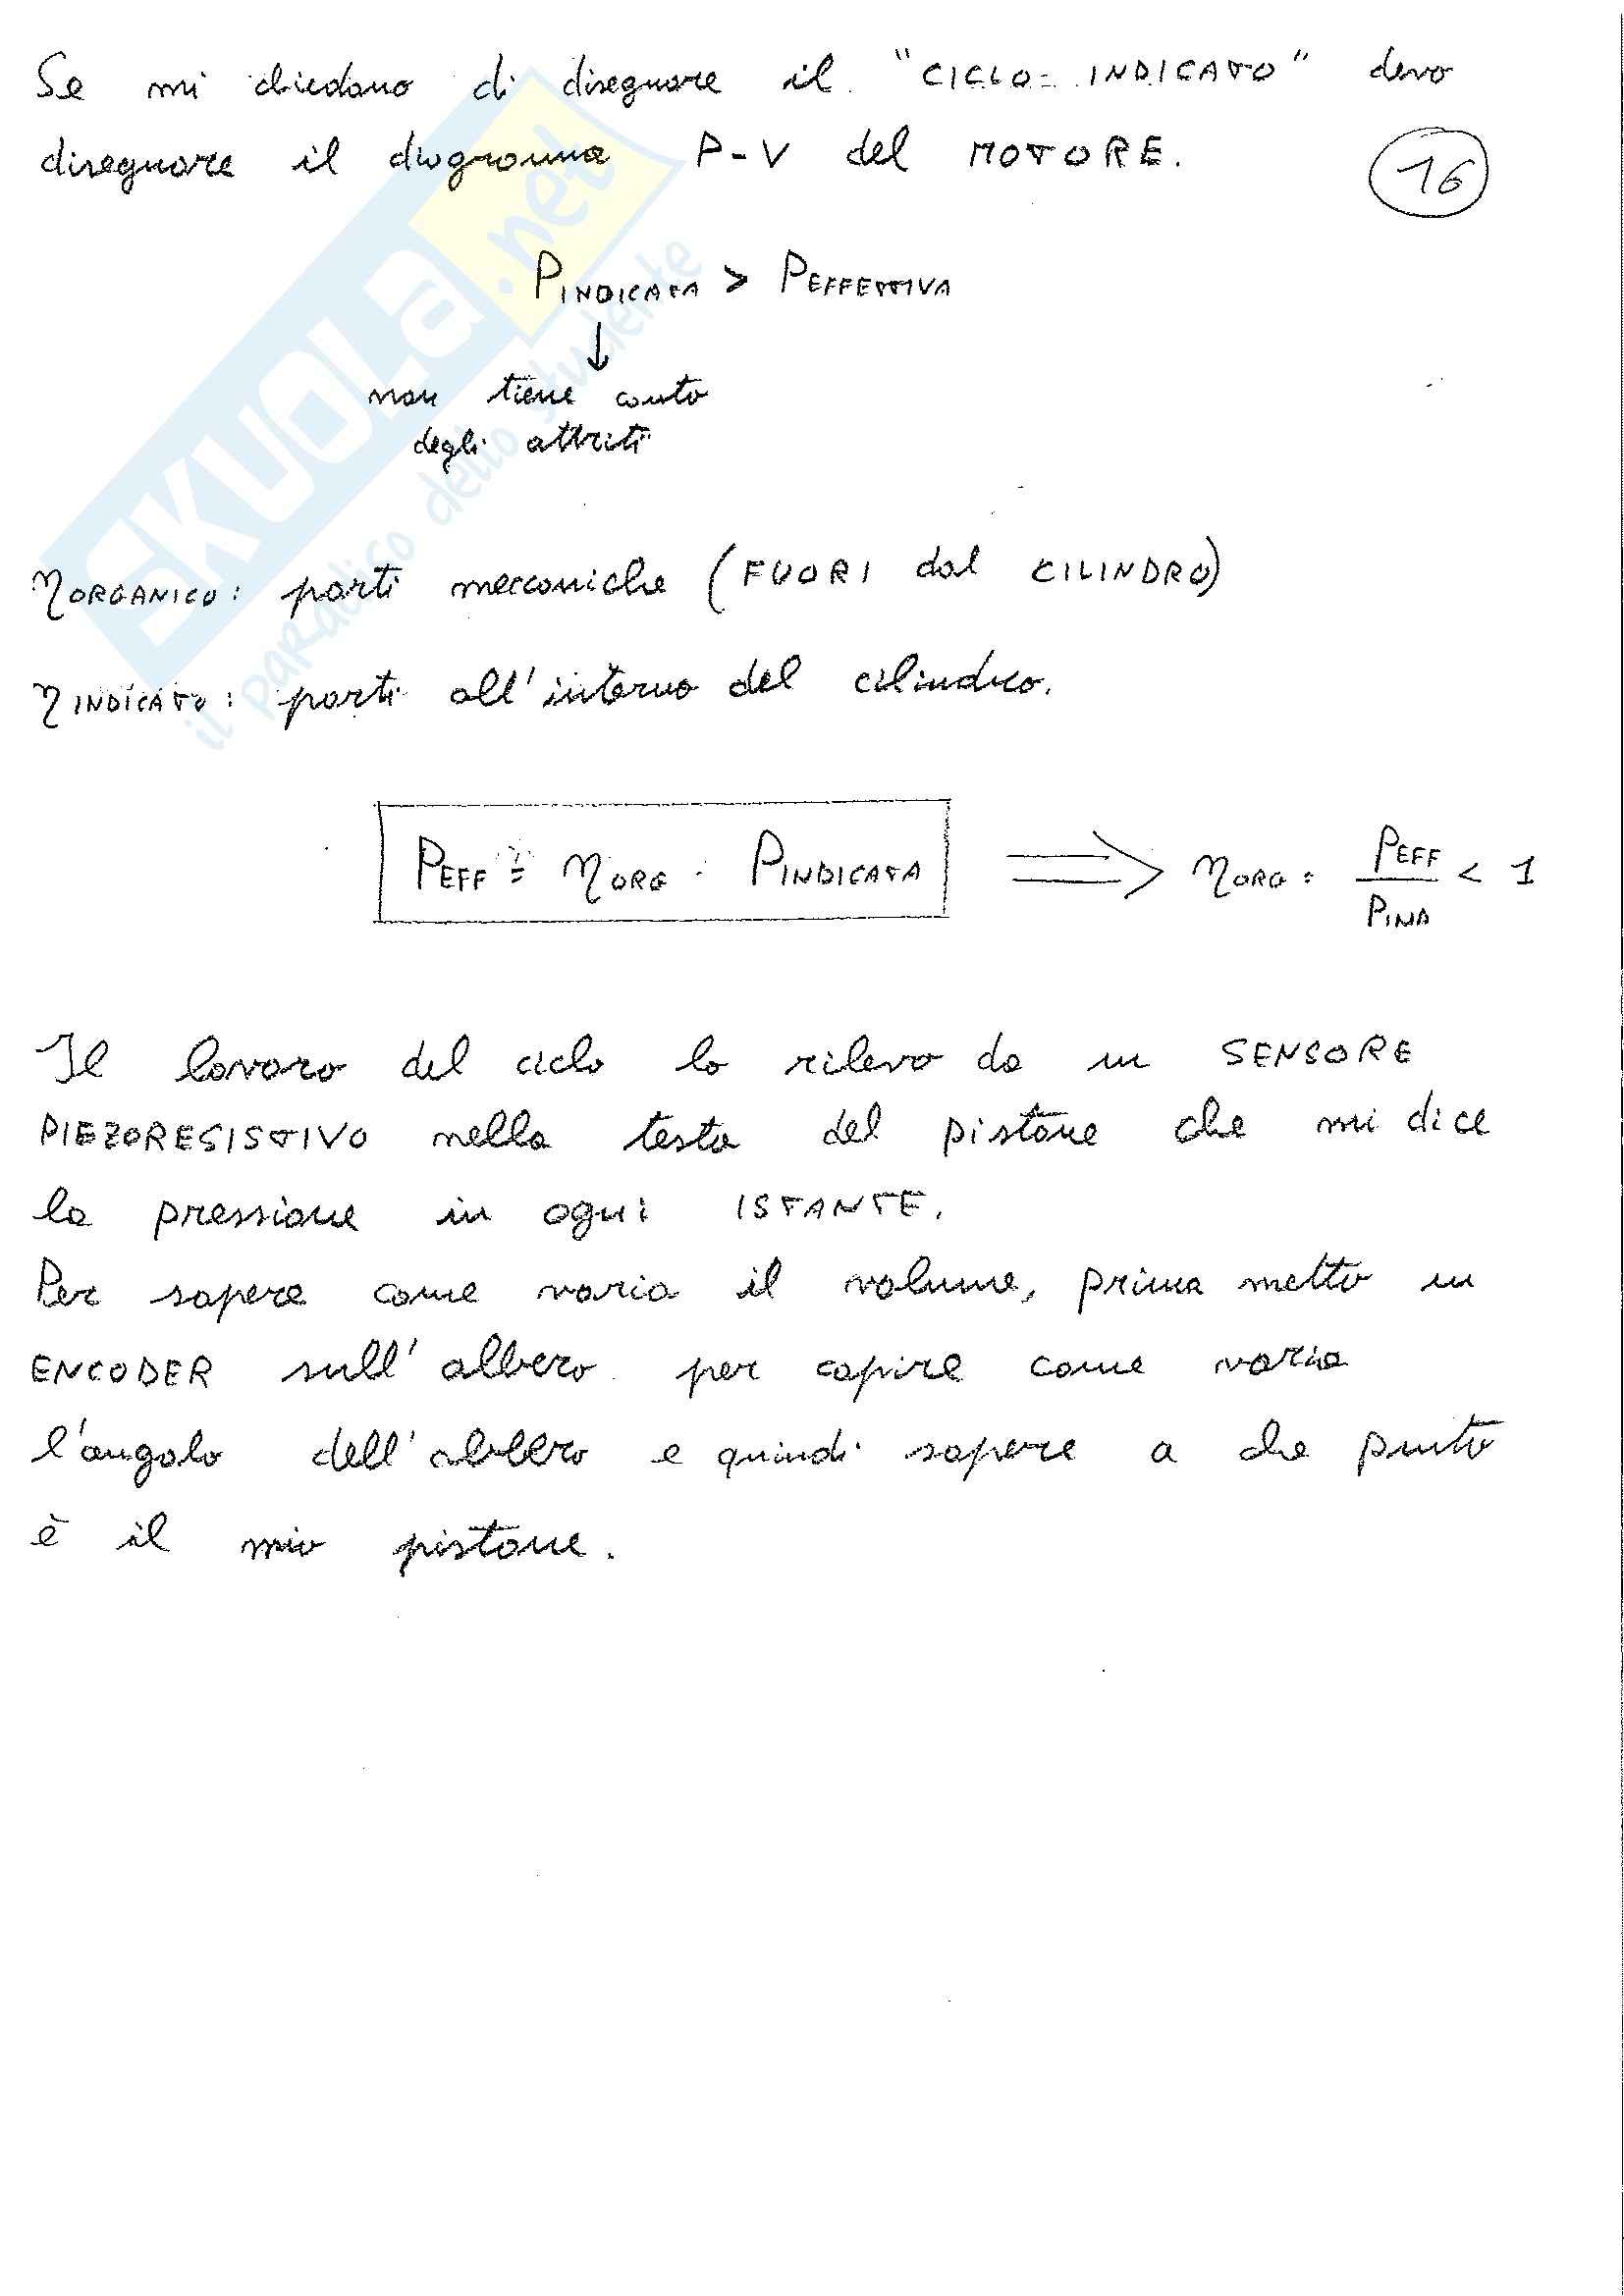 Se mi chiedono di disegnare il "CICLO INDICATO" devo
disegnare il diagramma P-V del MOTORE.
16
PINDICATA > PEFFETTIVA
↓
non tiene conto
degli attriti
ηORGANICO: parti meccaniche (FUORI dal CILINDRO)
ηINDICATO: parti all'interno del cilindro.
PEFF = ηORG · PINDICATA ⟹ ηORG = PEFF/PIND < 1
Il lavoro del ciclo lo rilevo da un SENSORE
PIEZORESISTIVO nella testa del pistone che mi dice
la pressione in ogni ISTANTE.
Per sapere come varia il volume, prima metto un
ENCODER sull'albero per capire come varia
l'angolo dell'albero e quindi sapere a che punto
è il mio pistone.
SKUOLA.net
il paradiso dello studente